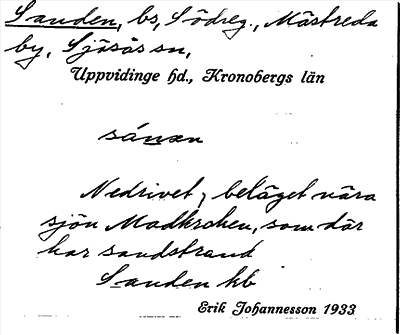 Sanden, bs, Södreg., Mästreda
by, Sjösås sn,
Uppvidinge hd., Kronobergs län
sánan
Nedrivet; beläget nära
sjön Madkroken, som där
har sandstrand
Sanden hb
Erik Johannesson 1933